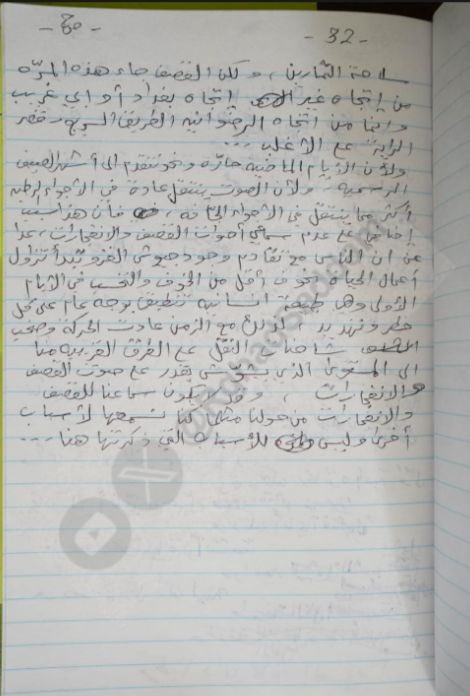 - 32 -
ساحة التمارين ، ولكن القصف جاء هذه المرّه
من إتجاه غير إتجاه بغداد أو ابي غريب
وانما من اتجاه الرضوانيه الطريق السريع - قصر
الراية على الأغلب ...
ولأن الأيام الماضيه حارّه ونحن نتقدم الى أشهر الصيف
الرسمية ، ولأن الصوت ينتقل عادة في الأجواء الرطبه
أكثر مما ينتقل في الأجواء الجافه ، فأن هذا سبب
إضافي على عدم سماع أصوات القصف والانفجارات ، عدا
عن ان الناس مع تقادم وجود جيوش الغزو تبدأ تزاول
أعمال الحياة بخوف أقل من الخوف والتحسب في الأيام
الأولى وهي طبيعة انسانيه تنطبق بوجه عام على كل
خطر وتهديد ، لذلك مع الزمن عادت الحركة وصخب
شاحنات النقل على الطرق القريبه منا
الى المستوى الذي يشوّش بقدر على صوت القصف
والانفجارات ، وقد يكون سماعنا للقصف
والانفجارات من حولنا مثلما كنا نسمعها لأسباب
أخرى وليس للأسباب التي ذكرتها هنا ...